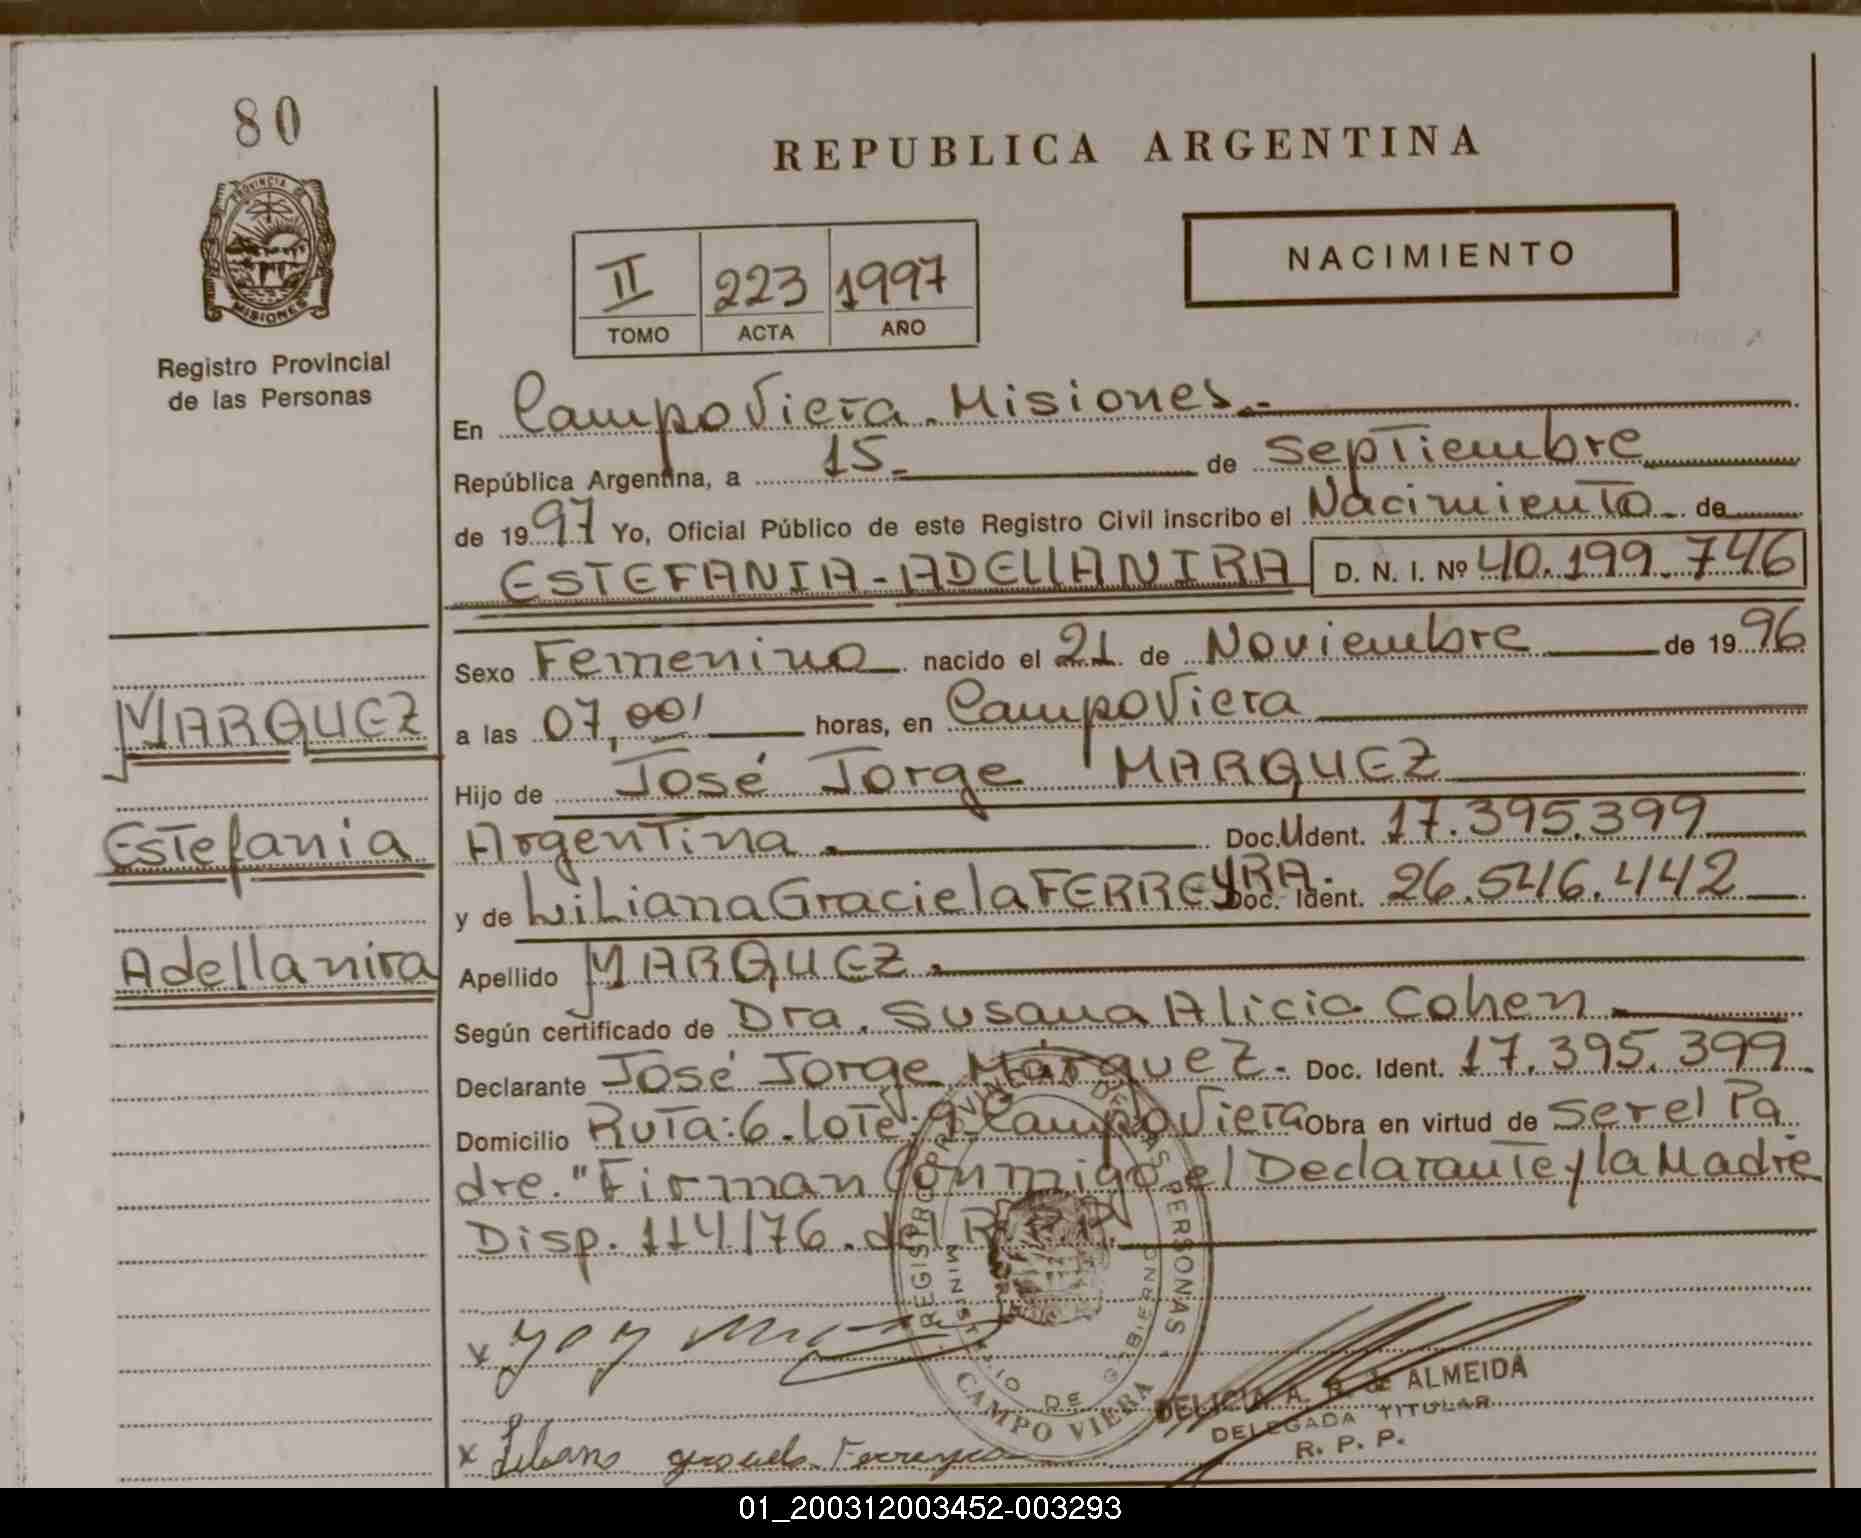 80
PROVINCIA DE
MISIONES
Registro Provincial
de las Personas
MARQUEZ
Estefania
Adellanira
REPUBLICA ARGENTINA
II 223 1997
TOMO ACTA AÑO
NACIMIENTO
En Campo Viera Misiones.-
República Argentina, a 15 de septiembre
de 1997 Yo, Oficial Público de este Registro Civil inscribo el Nacimiento de
ESTEFANIA - ADELLANIRA D. N. I. Nº 40.199.746
Sexo Femenino nacido el 21 de Noviembre de 1996
a las 07,00' horas, en Campo Viera
Hijo de José Jorge MARQUEZ
Argentina. Doc. Ident. 17.395.399
y de Liliana Graciela FERREYRA. Doc. Ident. 26.546.442
Apellido MARQUEZ.
Según certificado de Dra. Susana Alicia Cohen
Declarante José Jorge Márquez. Doc. Ident. 17.395.399
Domicilio Ruta: 6. lote: 9. Campo Viera Obra en virtud de ser el Pa
dre. "Firman Conmigo el Declarante y la Madre
Disp. 114/76. del R.P.P.
REGISTRO PROVINCIAL DE LAS PERSONAS
MINISTERIO DE GOBIERNO
CAMPO VIERA
x
x Liliana graciela Ferreyra
DELICIA A. R. de ALMEIDA
DELEGADA TITULAR
R. P. P.
01_200312003452-003293